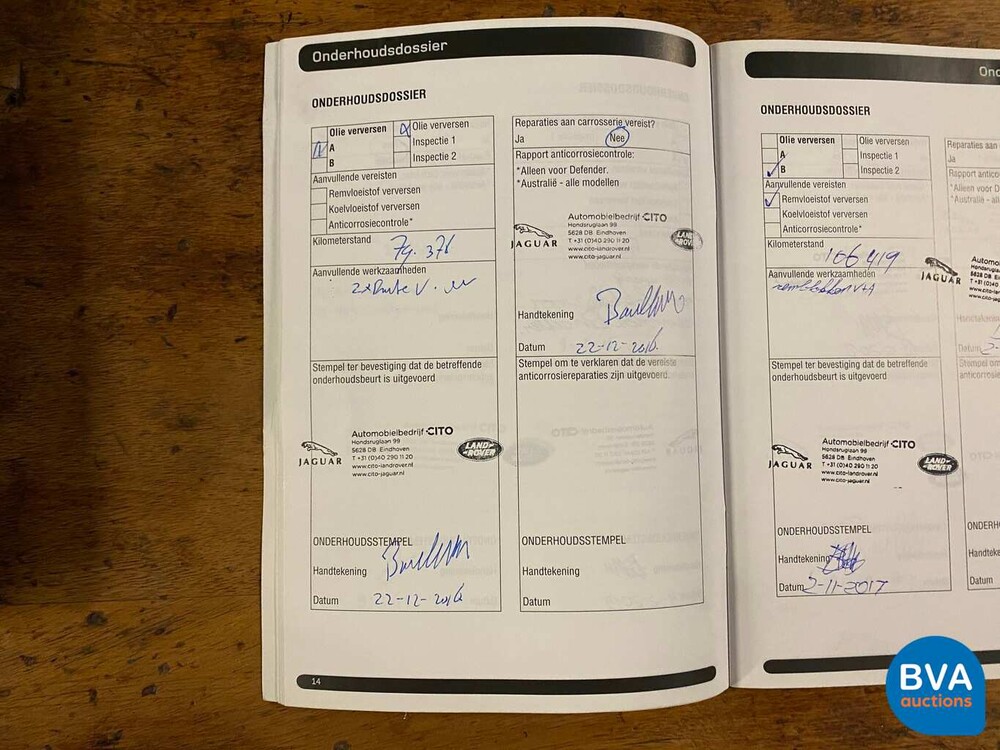 Onderhoudsdossier
ONDERHOUDSDOSSIER
Olie verversen
A
B
Olie verversen
Inspectie 1
Inspectie 2
Aanvullende vereisten
Remvloeistof verversen
Koelvloeistof verversen
Anticorrosiecontrole*
Kilometerstand
79.376
Aanvullende werkzaamheden
Stempel ter bevestiging dat de betreffende
onderhoudsbeurt is uitgevoerd
Automobielbedrijf CITO
Hondsruglaan 99
5628 DB Eindhoven
T +31 (0)40 290 11 20
www.cito-landrover.nl
www.cito-jaguar.nl
JAGUAR
LAND ROVER
ONDERHOUDSSTEMPEL
Handtekening
Datum 22-12-2016
Reparaties aan carrosserie vereist?
Ja Nee
Rapport anticorrosiecontrole:
*Alleen voor Defender.
*Australië - alle modellen
Automobielbedrijf CITO
Hondsruglaan 99
5628 DB Eindhoven
T +31 (0)40 290 11 20
www.cito-landrover.nl
www.cito-jaguar.nl
JAGUAR
LAND ROVER
Handtekening
Datum 22-12-2016
Stempel om te verklaren dat de vereiste
anticorrosiereparaties zijn uitgevoerd.
ONDERHOUDSSTEMPEL
Handtekening
Datum
14
ONDERHOUDSDOSSIER
Olie verversen
A
B
Olie verversen
Inspectie 1
Inspectie 2
Aanvullende vereisten
Remvloeistof verversen
Koelvloeistof verversen
Anticorrosiecontrole*
Kilometerstand
106419
Aanvullende werkzaamheden
remblokken V+A
Stempel ter bevestiging dat de betreffende
onderhoudsbeurt is uitgevoerd
Automobielbedrijf CITO
Hondsruglaan 99
5628 DB Eindhoven
T +31 (0)40 290 11 20
www.cito-landrover.nl
www.cito-jaguar.nl
JAGUAR
LAND ROVER
ONDERHOUDSSTEMPEL
Handtekening
Datum 2-11-2017
Reparaties aan
Ja
Rapport antico
*Alleen voor D
*Australië - all
JAGUAR
Datum
Stempel om
anticorrosie
ONDERH
Handteke
Datum
BVA
auctions